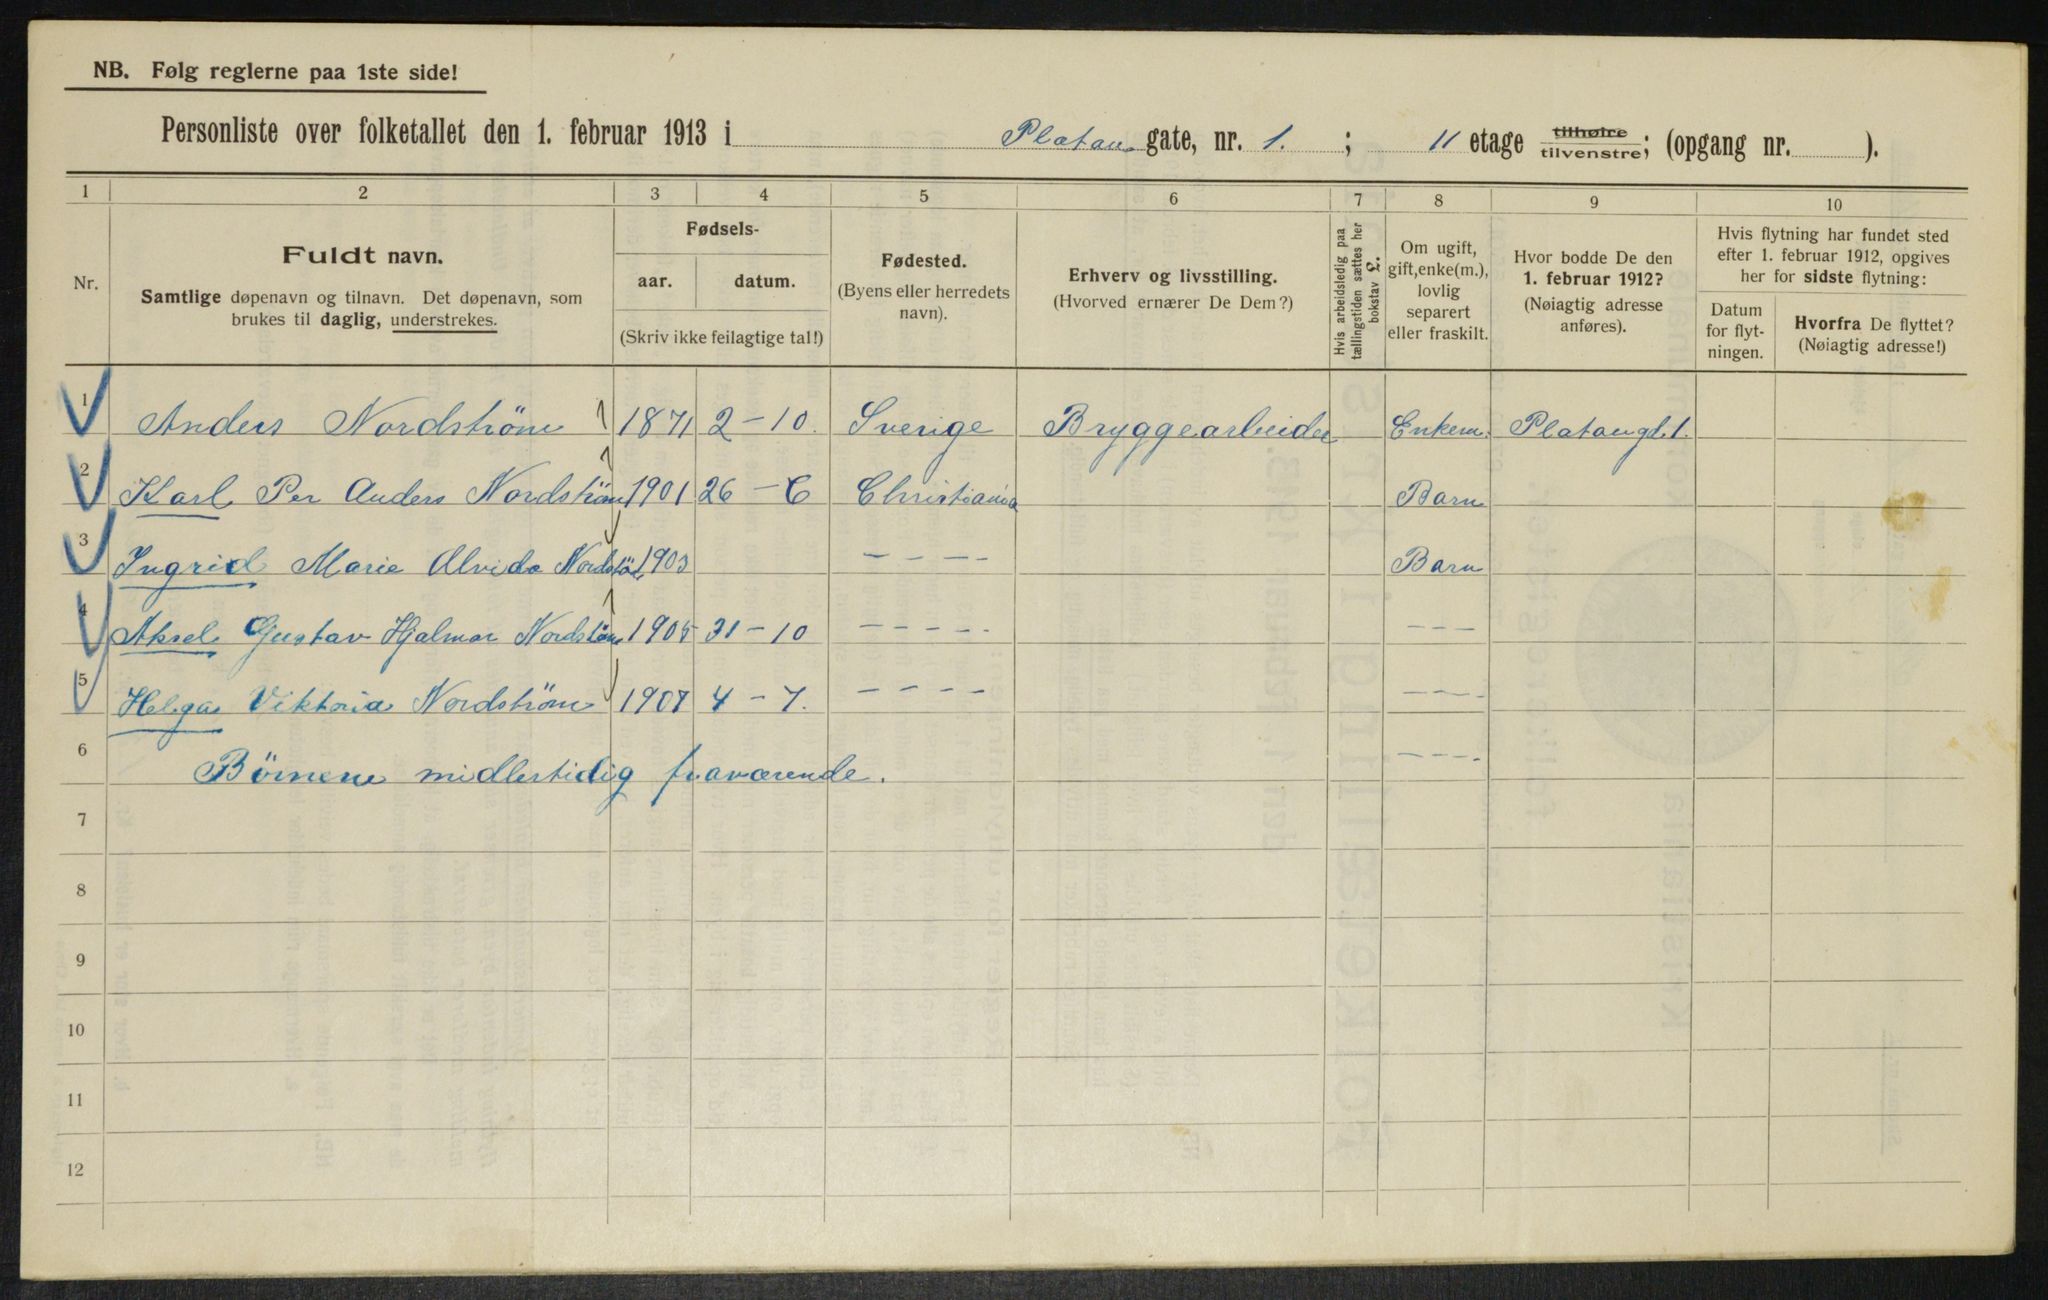 NB. Følg reglerne paa 1ste side!
Personliste over folketallet den 1. februar 1913 i Platan gate, nr. 1. ; 11 etage tilhøire tilvenstre; (opgang nr. ).
1 2 3 4 5 6 7 8 9 10
Nr.
Fuldt navn.
Samtlige døpenavn og tilnavn. Det døpenavn, som
brukes til daglig, understrekes.
Fødsels-
aar. datum.
(Skriv ikke feilagtige tal!)
Fødested.
(Byens eller herredets
navn).
Erhverv og livsstilling.
(Hvorved ernærer De Dem?)
Hvis arbeidsledig paa
tællingstiden sættes her
bokstav L.
Om ugift,
gift, enke(m.),
lovlig
separert
eller fraskilt.
Hvor bodde De den
1. februar 1912?
(Nøiagtig adresse
anføres).
Hvis flytning har fundet sted
efter 1. februar 1912, opgives
her for sidste flytning:
Datum
for flyt-
ningen.
Hvorfra De flyttet?
(Nøiagtig adresse!)
1 Anders Nordström 1871 2-10. Sverige Bryggearbeider Enkem. Platangt. 1.
2 Karl Per Anders Nordström 1901 26-6 Christiania Barn
3 Ingrid Marie Alvida Nordström 1903 - - - - Barn
4 Aksel Gustav Hjalmar Nordström 1905 31-10 - - - - - - - -
5 Helga Viktoria Nordström 1907 4-7. - - - - - - - -
6 Börnene midlertidig fraværende. - - - -
7
8
9
10
11
12